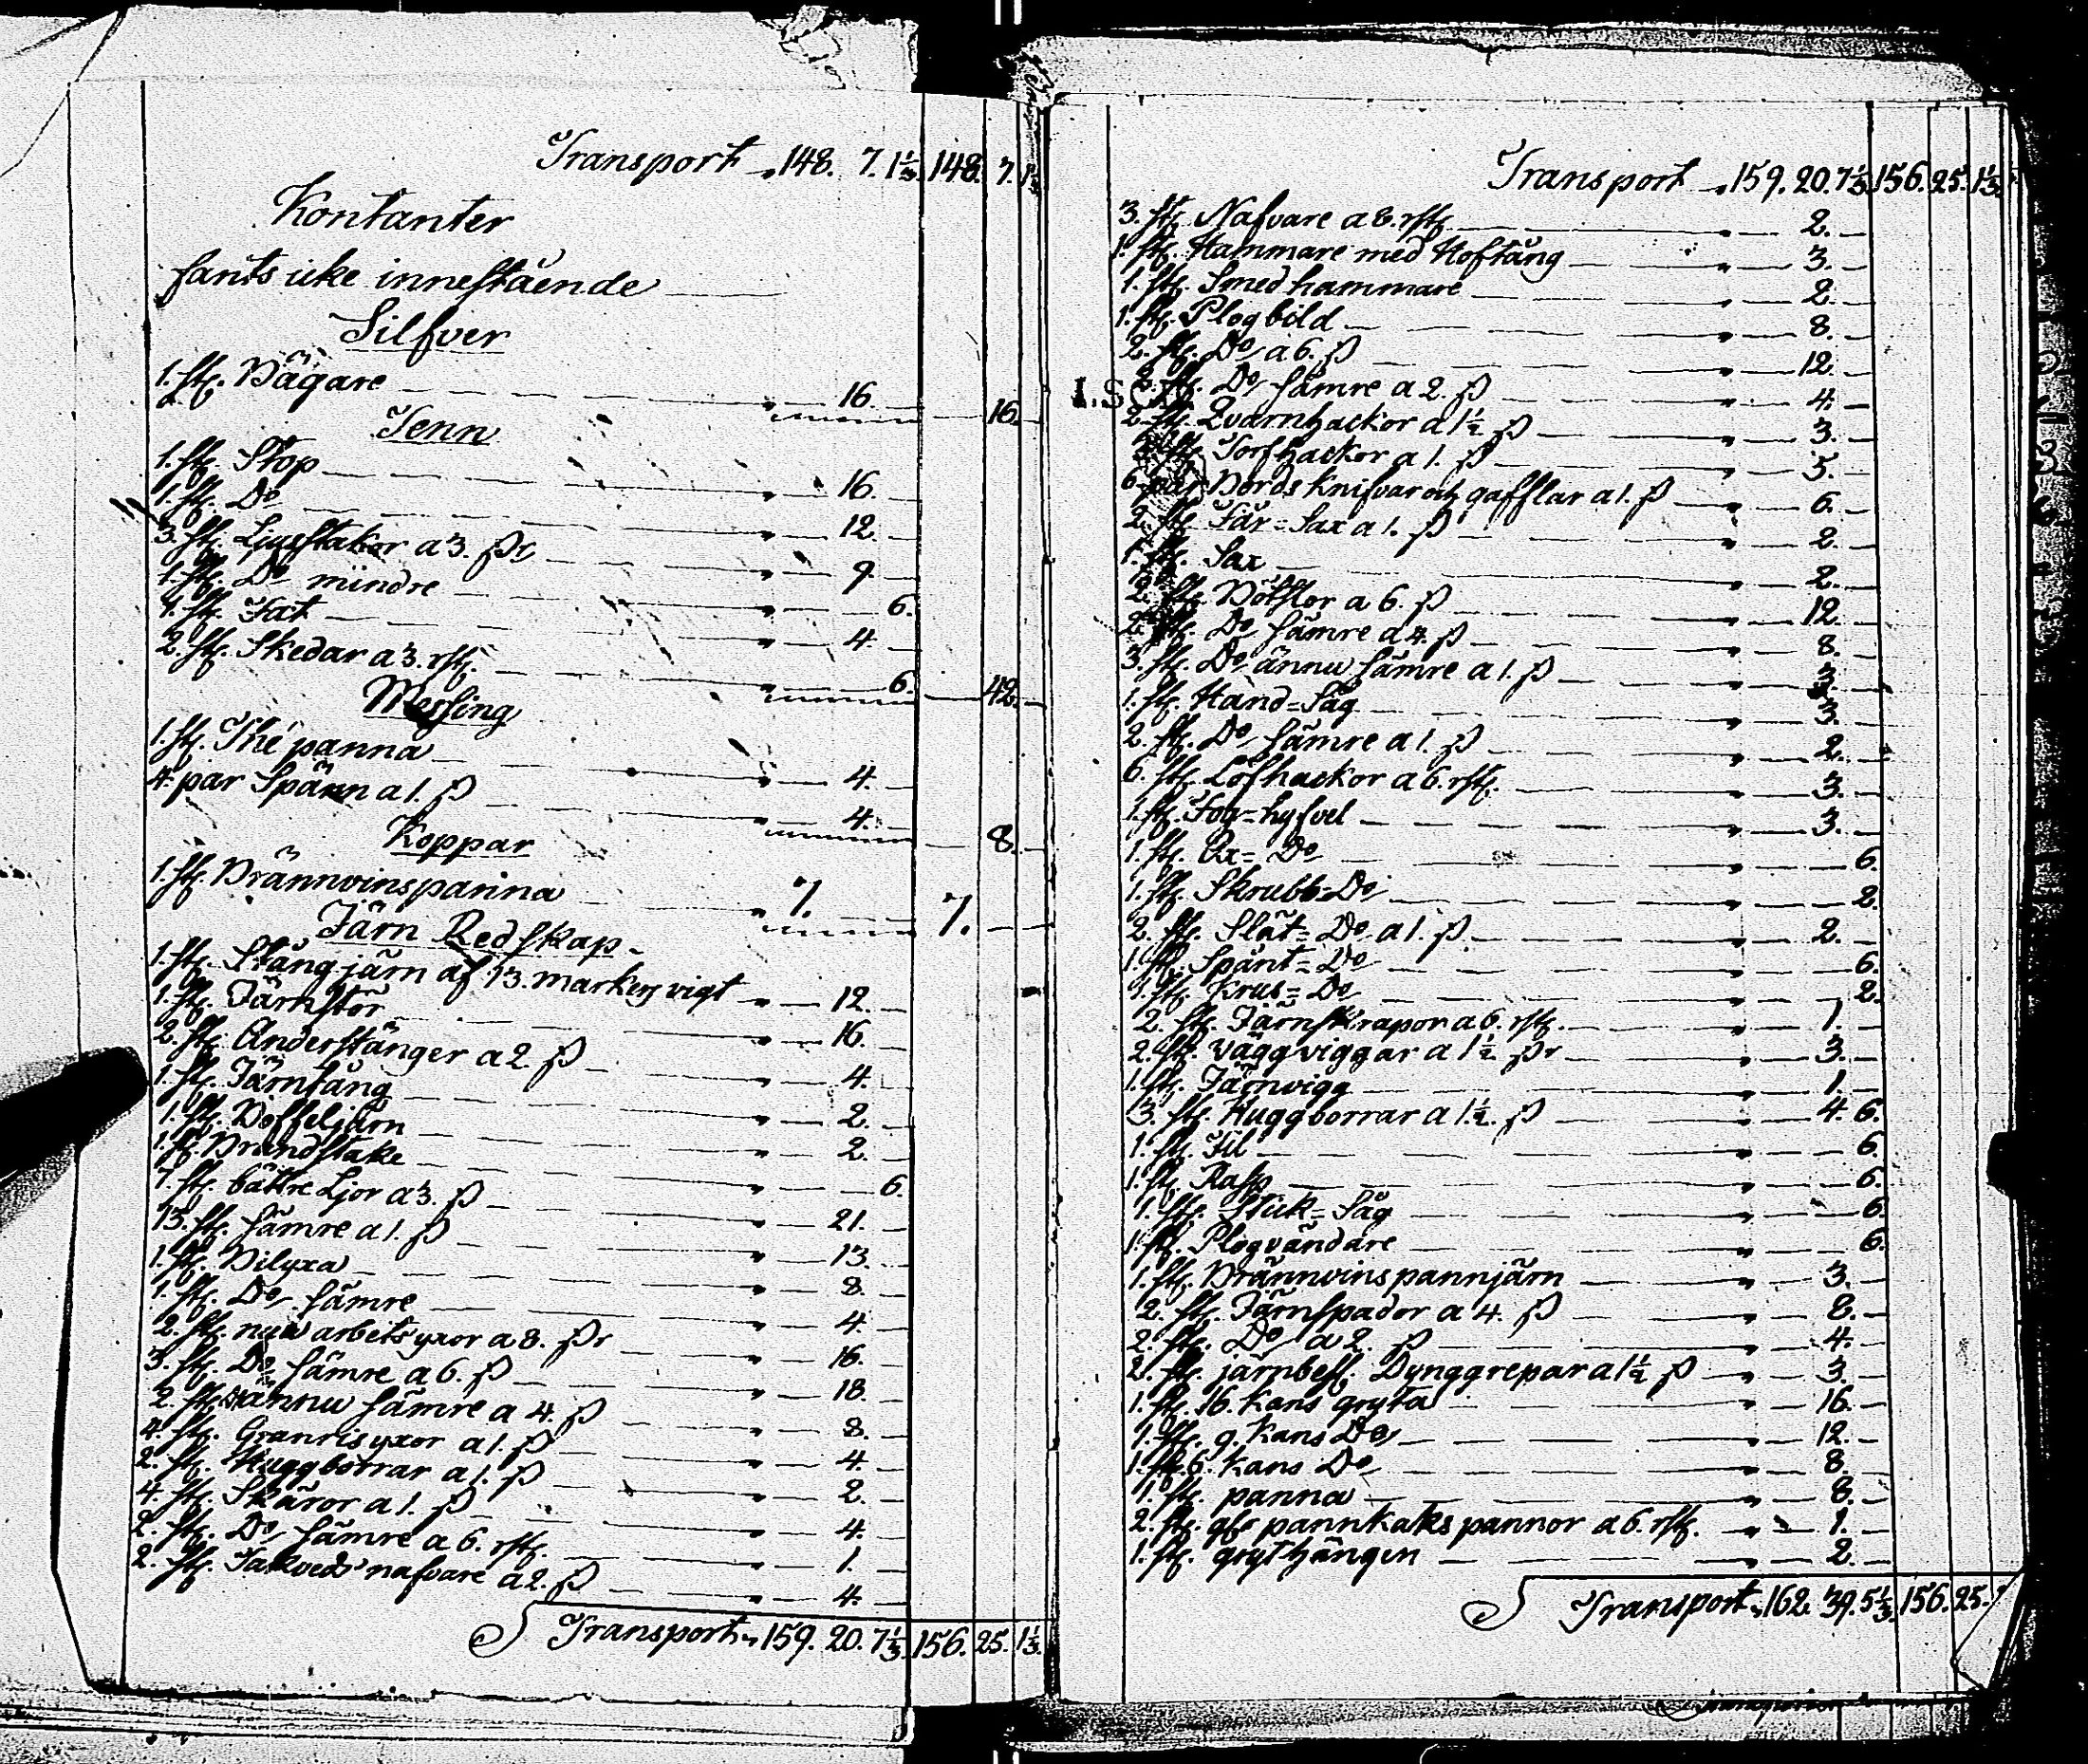 Transport 148. 7. 1⅓. 148. 7. 1⅓
Kontanter
fants icke innestående
Silfver
1. st. Bägare 16. 16.
Tenn
1. st. Stop 16.
1. st. Do 12.
3. st. Ljusstakar a 3. ß 9.
1. st. Do mindre 6.
1. st. Fat 4.
2. st. Skedar a 3. rst. 6. 42.
Messing
1. st. Thé panna 4.
4. par Spänn a 1. ß 4. 8.
Koppar
1. st. Brännvinspanna 7. 7.
Järn Redskap
1. st. Stångjärn af 13. markers vigt 12.
1. st. Järnstör 16.
2. st. Anderstänger a 2. ß 4.
1. st. Järntång 2.
1. st. Böffeljärn 2.
1. st. Brandstake 6.
7. st. bättre Ljor a 3. ß 21.
13. st. sämre a 1. ß 13.
1. st. Bilyxa 8.
1. st. Do sämre 4.
2. st. nya arbetsyxor a 8. ß 16.
3. st. Do sämre a 6. ß 18.
2. st. ännu sämre a 4. ß 8.
4. st. Granrisyxor a 1. ß 4.
2. st. Huggborrar a 1. ß 2.
4. st. Skäror a 1. ß 4.
2. st. Do sämre a 6. rst. 1.
2. st. Takveds nafvare a 2. ß 4.
Transport 159. 20. 7⅓. 156. 25. 1⅓.
Transport 159. 20. 7⅓ 156. 25. 1⅓
3. st. Nafvare a 8. rst. 2.
1. st. Hammare med Hoftång 3.
1. st. Smedhammare 2.
1. st. Plogbild 8.
2. st. Do a 6. ß 12.
2. st. Do sämre a 2. ß 4.
2. st. Qvarnhackor a 1½ ß 3.
st. Torfhackor a 1. ß 5.
6. par Bords knifvar och gafflar a 1. ß 6.
2. st. Får=Sax a 1. ß 2.
1. st. Sax 2.
2. st. Bötslor a 6. ß 12.
2. st. Do sämre a 4. ß 8.
3. st. Do ännu sämre a 1. ß 3.
1. st. Hand=Såg 3.
2. st. Do sämre a 1. ß 2.
6. st. Löfhackor a 6. rst. 3.
1. st. Fog=hyfvel 3.
1. st. Ox= Do 6.
1. st. Skrubb=Do 2.
2. st. Slät=Do a 1. ß. 2.
1. st. Spånt=Do 6.
1. st. Krus=Do 2.
2. st. Järnskrapor a 6. rst. 1.
2. st. väggviggar a 1½ ß 3.
1. st. Järnvigg 1.
3. st. Huggborrar a 1½. ß 4. 6.
1. st. Fil 6.
1. st. Rasp 6.
1. st. Stick=Såg 6.
1. st. Plogvändare 6.
1. st. Brännvinspannjärn 3.
2. st. Järnspador a 4. ß 8.
2. st. Do a 2. ß 4.
2. st. järnbesl. Dynggrepar a 1½ ß 3.
1. st. 16. kans gryta 16.
1. st. 9. kans Do 12.
1. st. 6. kans Do 8.
1. st. panna 8.
2. st. pannkaks pannor a 6. rst. 1.
1. st. grythängen 2.
Transport 162. 39. 5⅓. 156. 25.